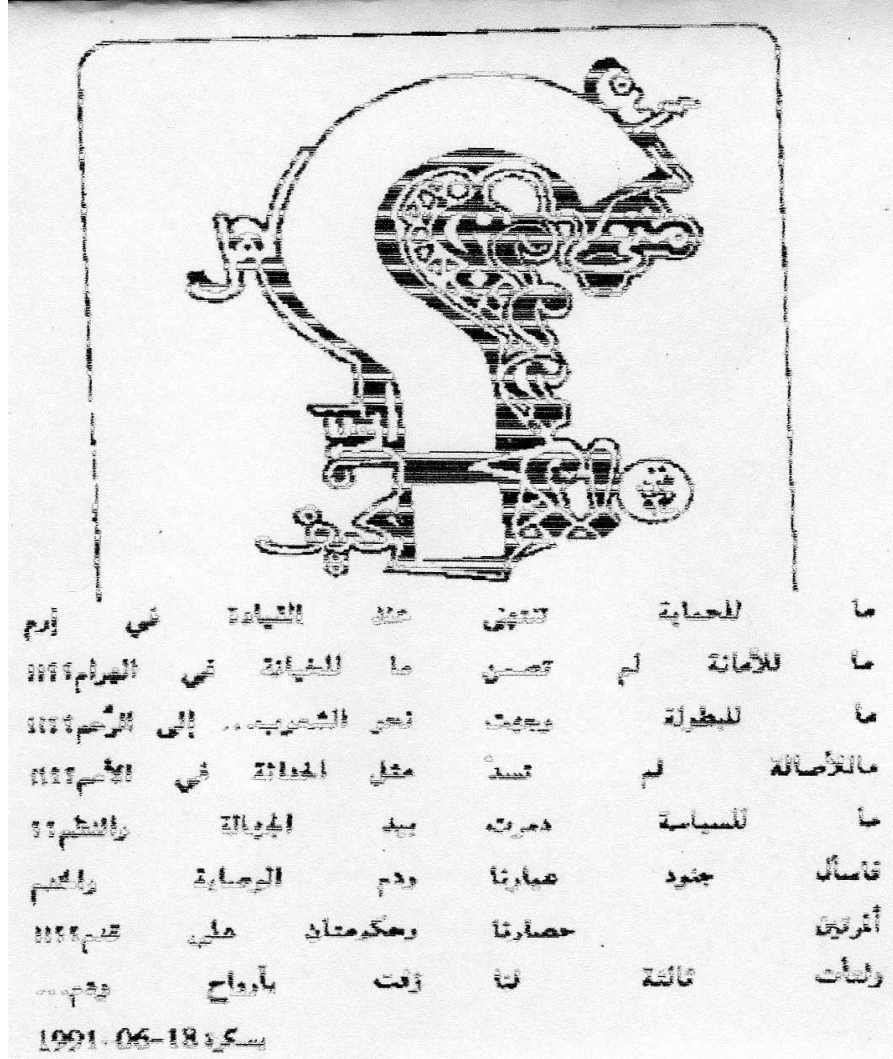 ما للحماية تنتهي عند القيادة في إرم
ما للأمانة لم تصن ما للخيانة في الهرام؟؟!!
ما للبطولة وجهت نحو الشعوب... إلى الرُّحم؟؟!!
ماللأصالة لم تسدْ مثل الحداثة في الأمم؟؟!!
ما للسياسة دمرت بيد الجهالة والنظم؟؟
فاسأل جنود ودم الوصاية
حصارنا وحكومتان على قدم؟؟!!
ولتأت ثالثة لنا زفت بأرواح ودم...
بسكرة 18-06-1991